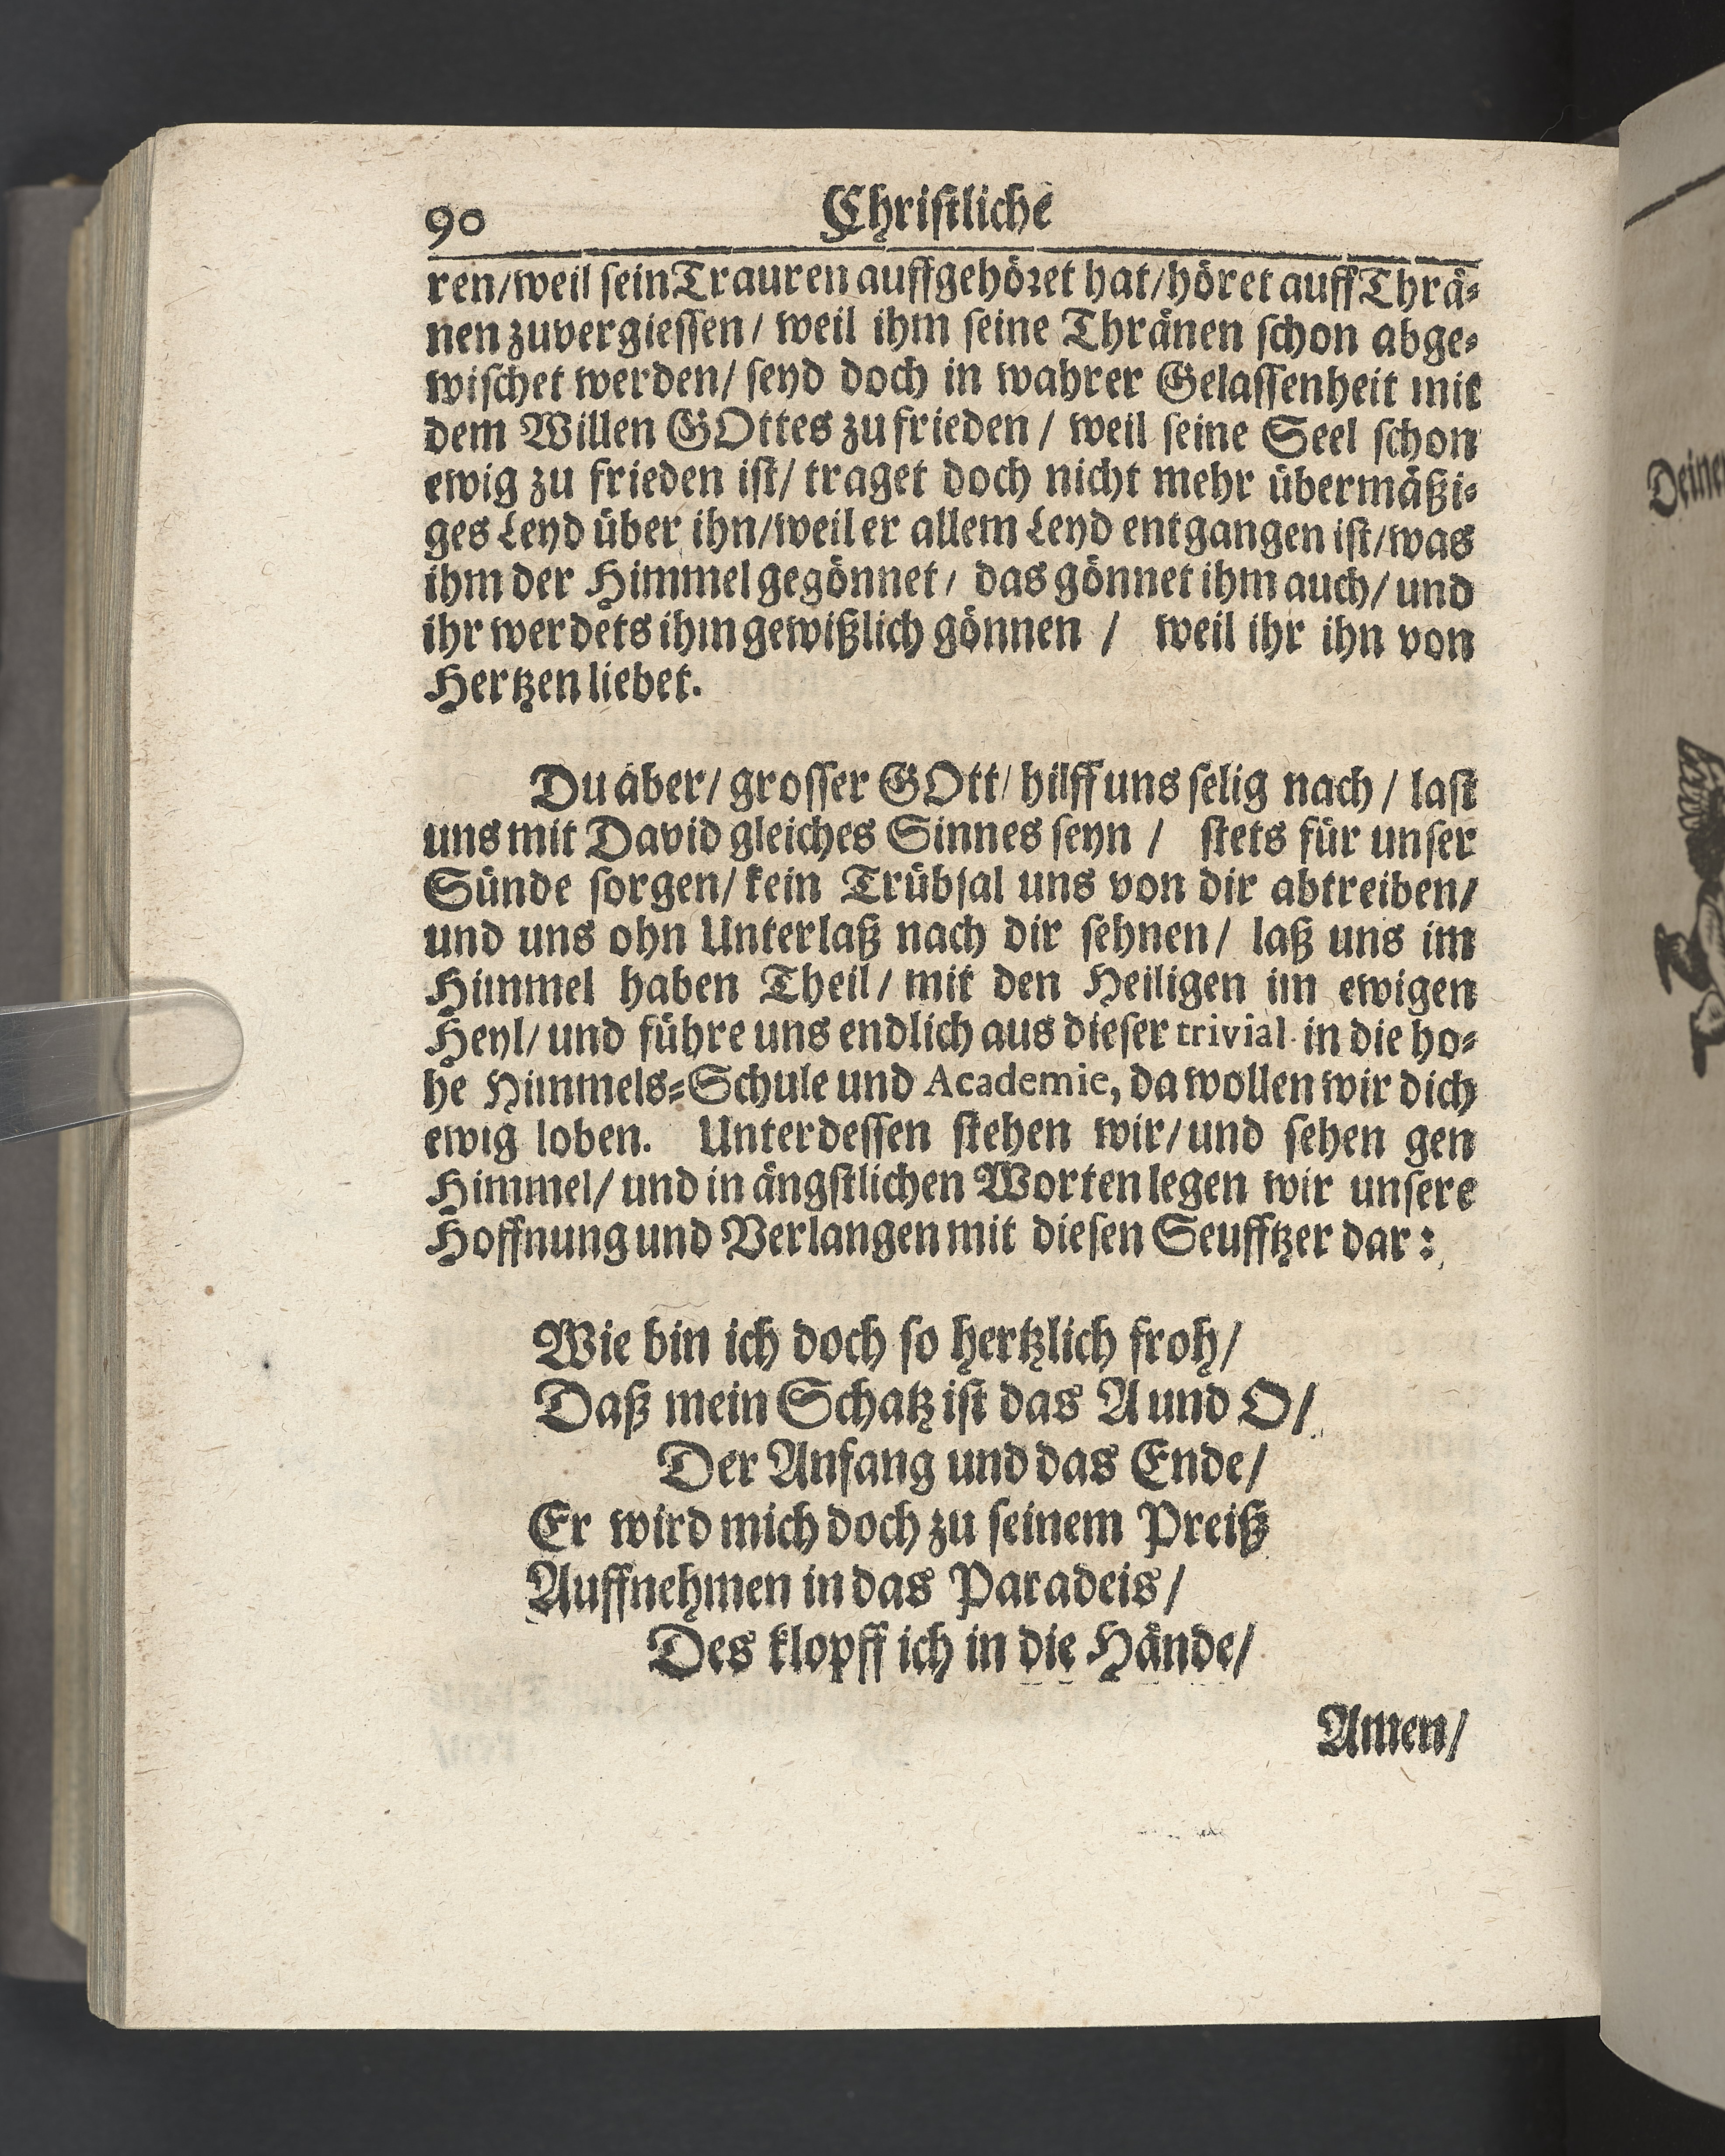 90 Christliche
ren/weil sein Trauren auffgehöret hat/höret auff Thrä-
nen zuvergiessen/ weil ihm seine Thränen schon abge-
wischet werden/ seyd doch in wahrer Gelassenheit mit
dem Willen GOttes zu frieden / weil seine Seel schon
ewig zu frieden ist/ traget doch nicht mehr übermäßi-
ges Leyd über ihn/weil er allem Leyd entgangen ist/was
ihm der Himmel gegönnet/ das gönnet ihm auch/ und
ihr werdets ihm gewißlich gönnen / weil ihr ihn von
Hertzen liebet.
Du aber/ grosser GOtt/ hilff uns selig nach / last
uns mit David gleiches Sinnes seyn / stets für unser
Sünde sorgen/ kein Trübsal uns von dir abtreiben/
und uns ohn Unterlaß nach dir sehnen/ laß uns im
Himmel haben Theil/ mit den Heiligen im ewigen
Heyl/ und führe uns endlich aus dieser trivial in die ho-
he Himmels-Schule und Academie, da wollen wir dich
ewig loben. Unterdessen stehen wir/und sehen gen
Himmel/ und in ängstlichen Worten legen wir unsere
Hoffnung und Verlangen mit diesen Seufftzer dar:
Wie bin ich doch so hertzlich froh/
Daß mein Schatz ist das A und O/
Der Anfang und das Ende/
Er wird mich doch zu seinem Preiß
Auffnehmen in das Paradeis/
Des klopff ich in die Hände/
Amen/